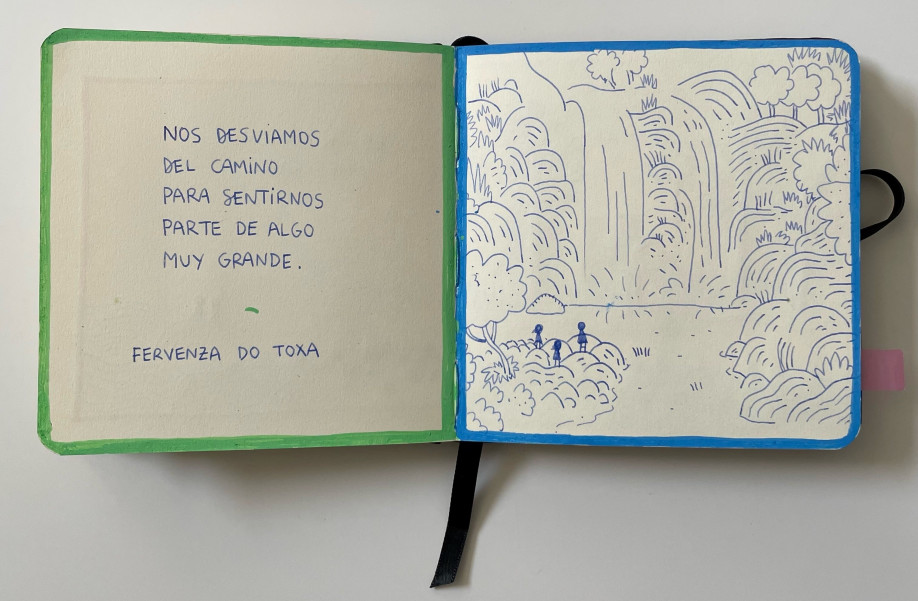 NOS DESVIAMOS
DEL CAMINO
PARA SENTIRNOS
PARTE DE ALGO
MUY GRANDE.
FERVENZA DO TOXA